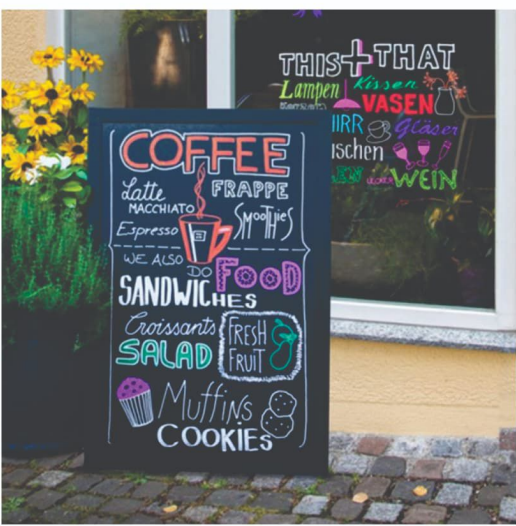 THIS + THAT
Lampen Kissen
VASEN
Gläser
WEIN
COFFEE
Latte
MACCHIATO
FRAPPE
Espresso
Smoothies
WE ALSO
DO FOOD
SANDWICHES
Croissants
SALAD
FRESH
FRUIT
Muffins
COOKIES